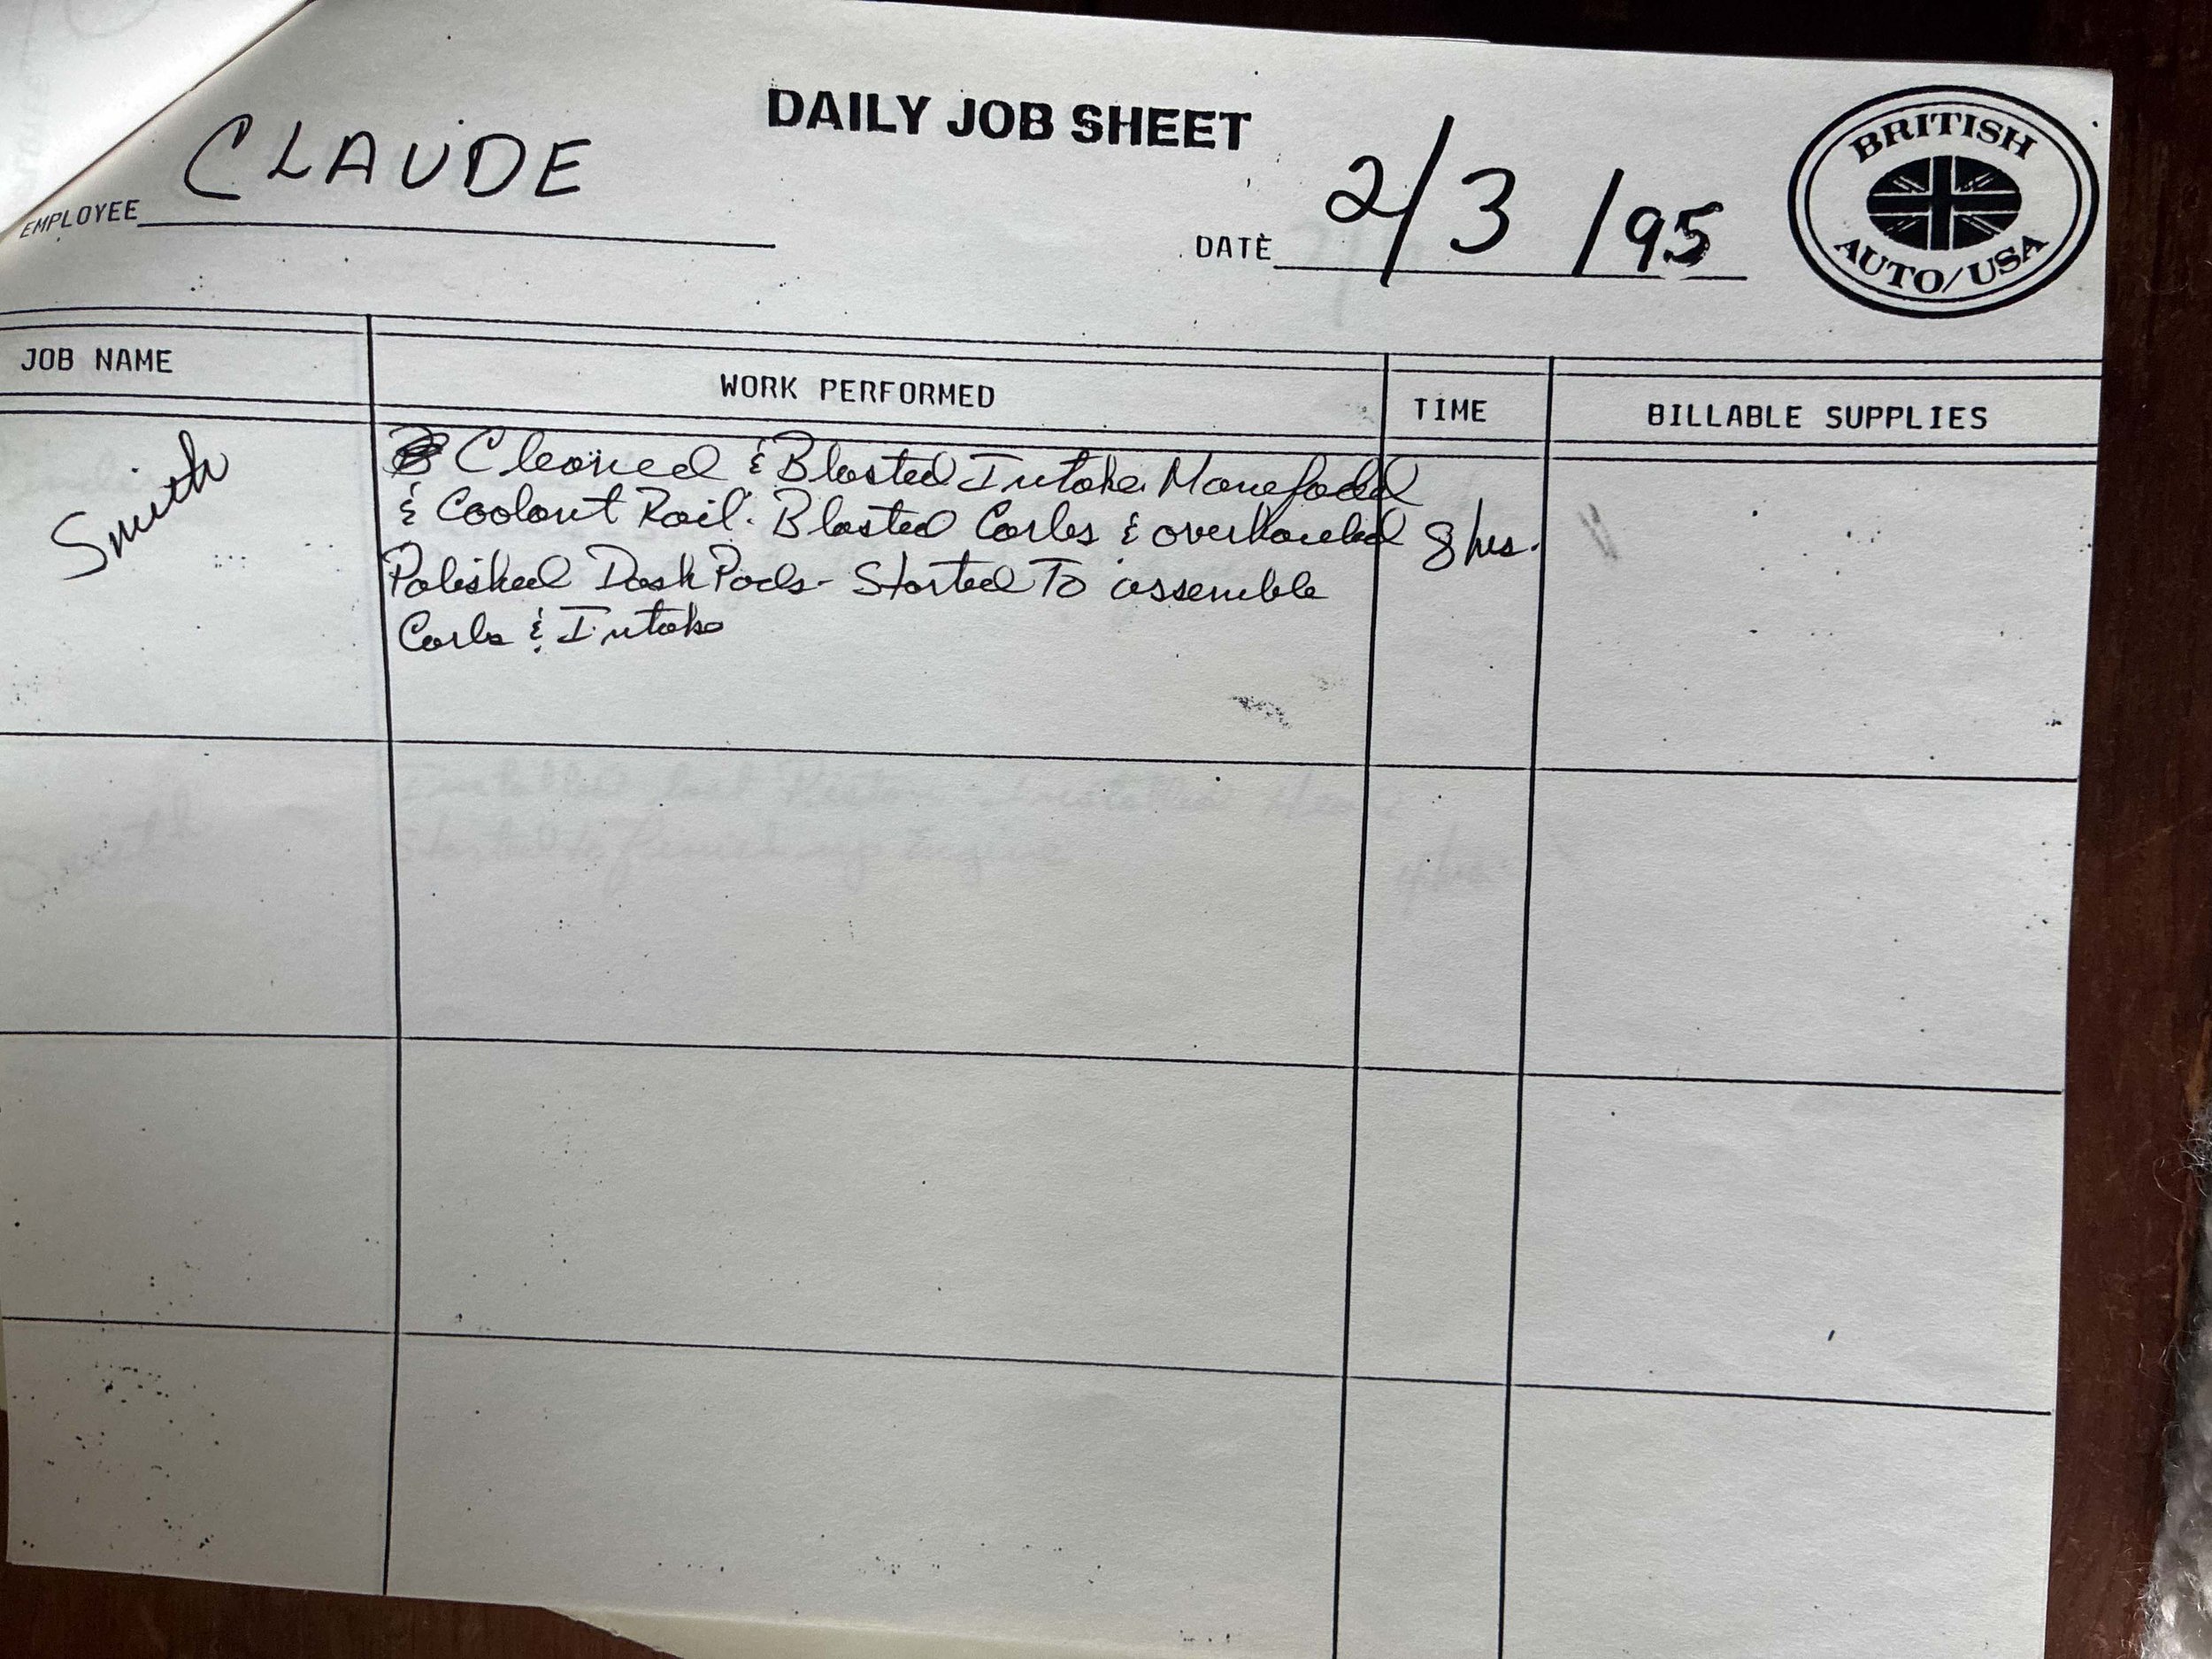 DAILY JOB SHEET
EMPLOYEE CLAUDE
DATE 2/3/95
BRITISH
AUTO/USA
JOB NAME
WORK PERFORMED
TIME
BILLABLE SUPPLIES
Smith
Cleaned & Blasted Intake Manefodd
& Coolant Rail. Blasted Carbs & overhauled
8 hrs.
Polished Dash Pods - Started To assemble
Carbs & Intake